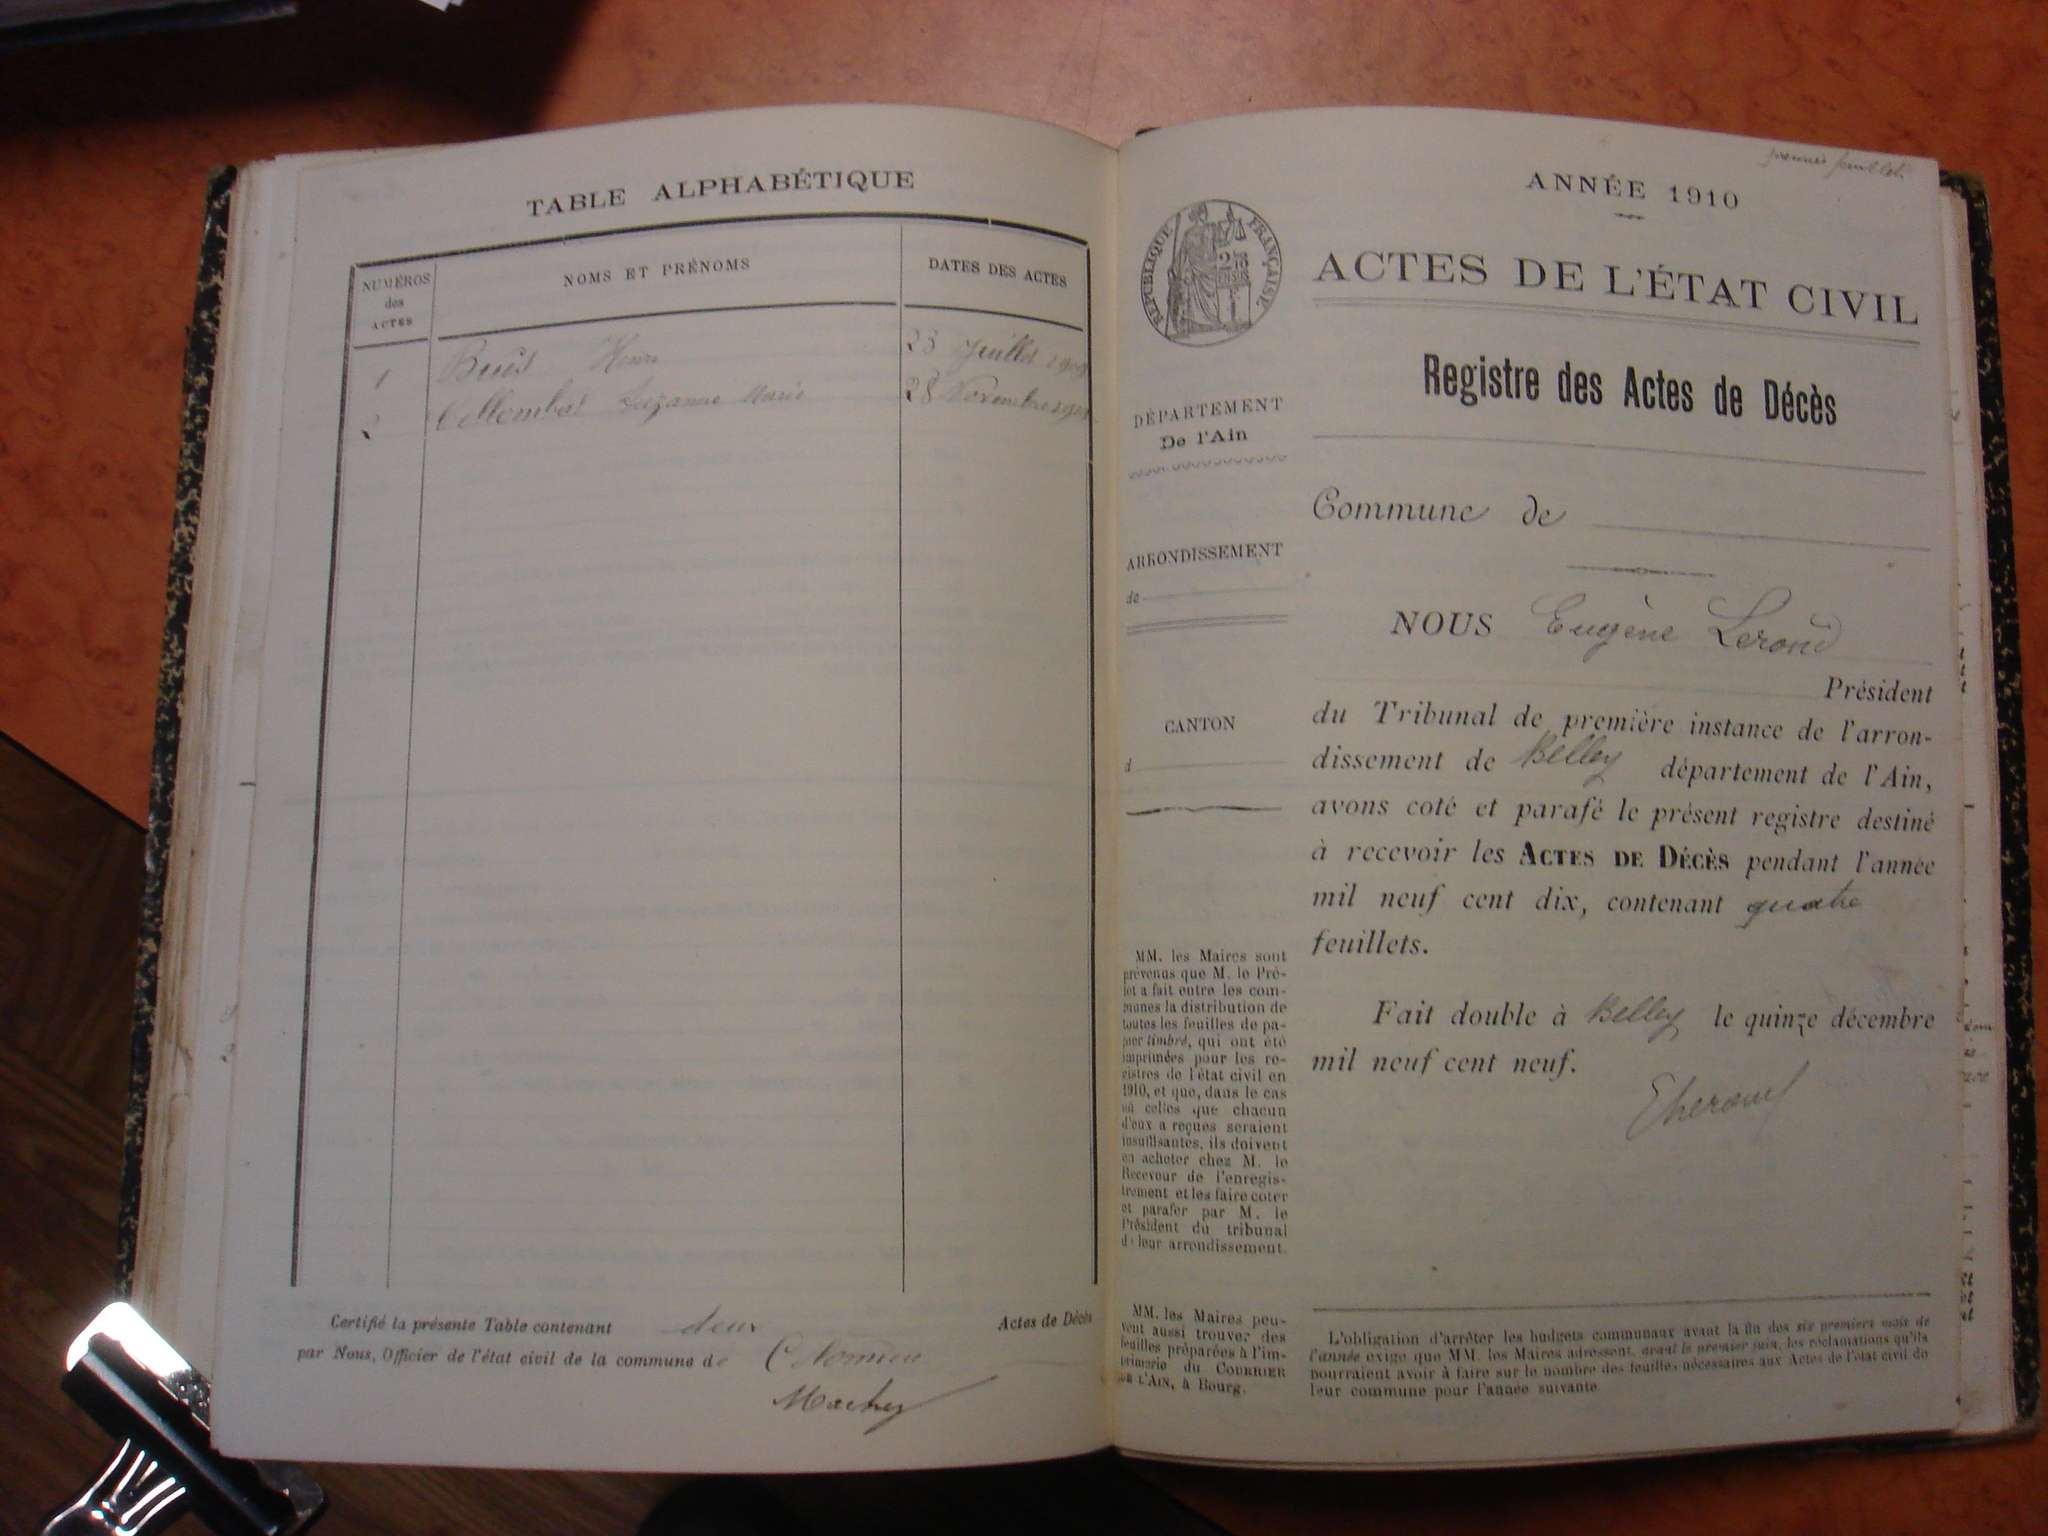 TABLE ALPHABÉTIQUE
NUMÉROS
des
ACTES
NOMS ET PRÉNOMS
DATES DES ACTES
1 Henri 23 Juillet 1909
2 Suzanne Marie 28 Novembre
Certifié la présente Table contenant deux Actes de Décès
par Nous, Officier de l'état civil de la commune de
premier feuillet
ANNÉE 1910
RÉPUBLIQUE FRANÇAISE
ACTES DE L'ÉTAT CIVIL
Registre des Actes de Décès
DÉPARTEMENT
De l'Ain
Commune de
ARRONDISSEMENT
de
CANTON
d
NOUS Eugène
Président
du Tribunal de première instance de l'arron-
dissement de Belley département de l'Ain,
avons coté et parafé le présent registre destiné
à recevoir les ACTES DE DÉCÈS pendant l'année
mil neuf cent dix, contenant quatre
feuillets.
Fait double à Belley le quinze décembre
mil neuf cent neuf.
MM. les Maires sont
prévenus que M. le Pré-
fet a fait entre les com-
munes la distribution de
toutes les feuilles de pa-
pier timbré, qui ont été
imprimées pour les re-
gistres de l'état civil en
1910, et que, dans le cas
où celles que chacun
d'eux a reçues seraient
insuffisantes, ils doivent
en acheter chez M. le
Receveur de l'enregis-
trement et les faire coter
et parafer par M. le
Président du tribunal
de leur arrondissement.
MM. les Maires peu-
vent aussi trouver des
feuilles préparées à l'im-
primerie du COURRIER
DE L'AIN, à Bourg.
L'obligation d'arrêter les budgets communaux avant la fin des six premiers mois de
l'année exige que MM. les Maires adressent, avant le premier juin, les réclamations qu'ils
pourraient avoir à faire sur le nombre des feuilles nécessaires aux Actes de l'état civil de
leur commune pour l'année suivante